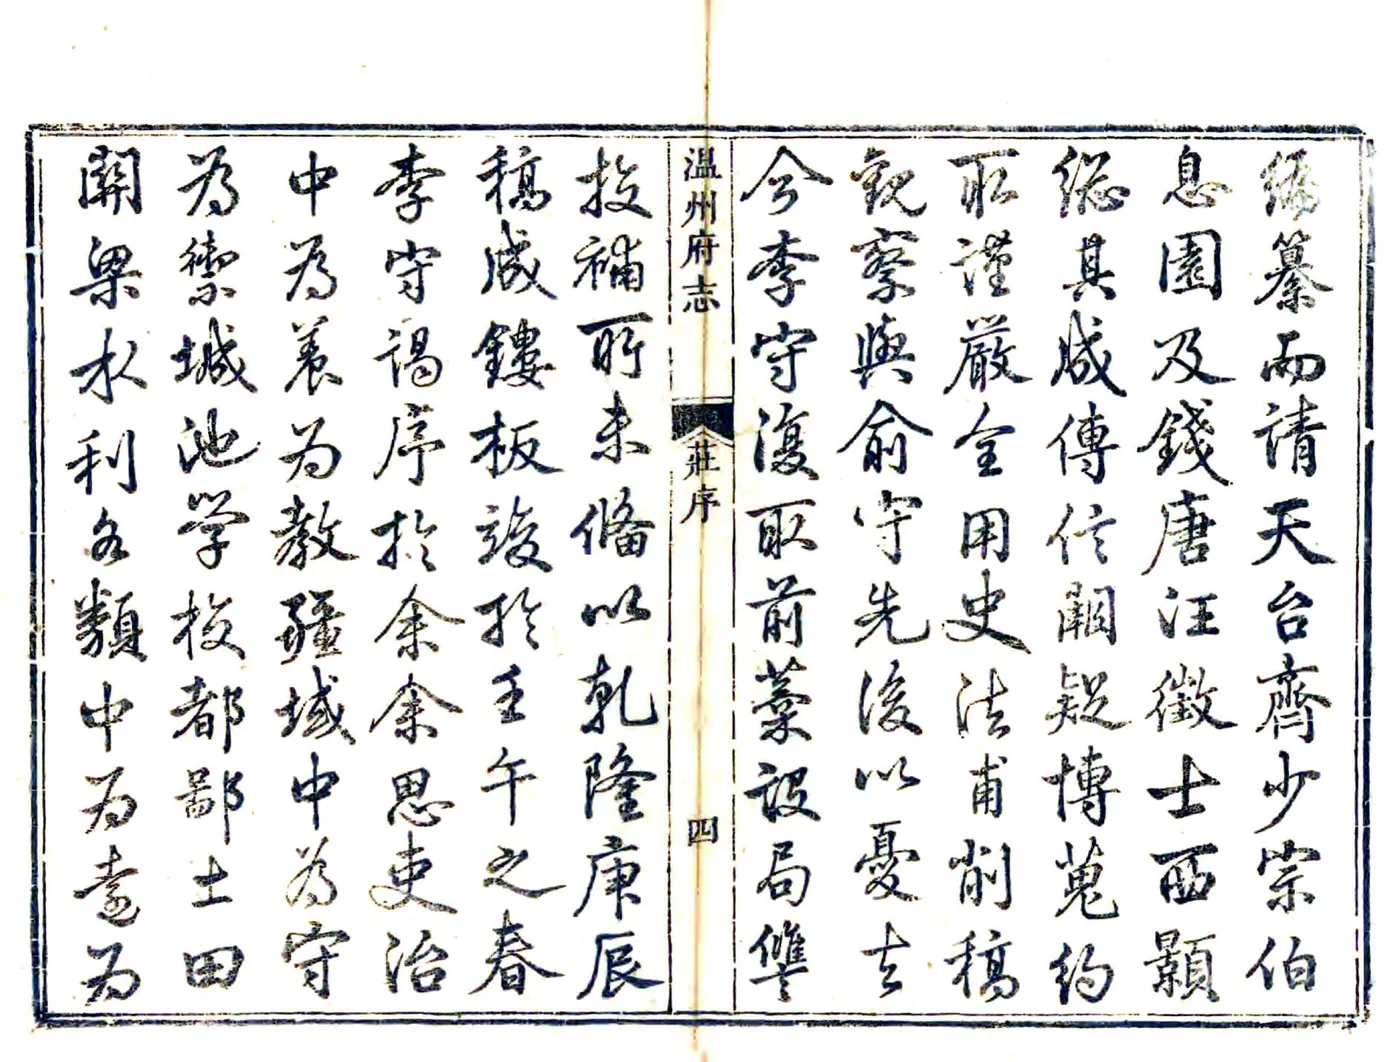 編纂而請天台齊少宗伯
息園及錢唐汪徵士西顥
総其成傳信闕疑博蒐約
取謹嚴全用史法甫削稿
觀察與俞守先後以憂去
今李守復取前藁設局讐
温州府志
莊序
四
投補所未備以乾隆庚辰
稿成鏤板竣於壬午之春
李守謁序於余余思吏治
中為養為教疆域中為守
為禦城池學校都鄙土田
關梁水利各類中為